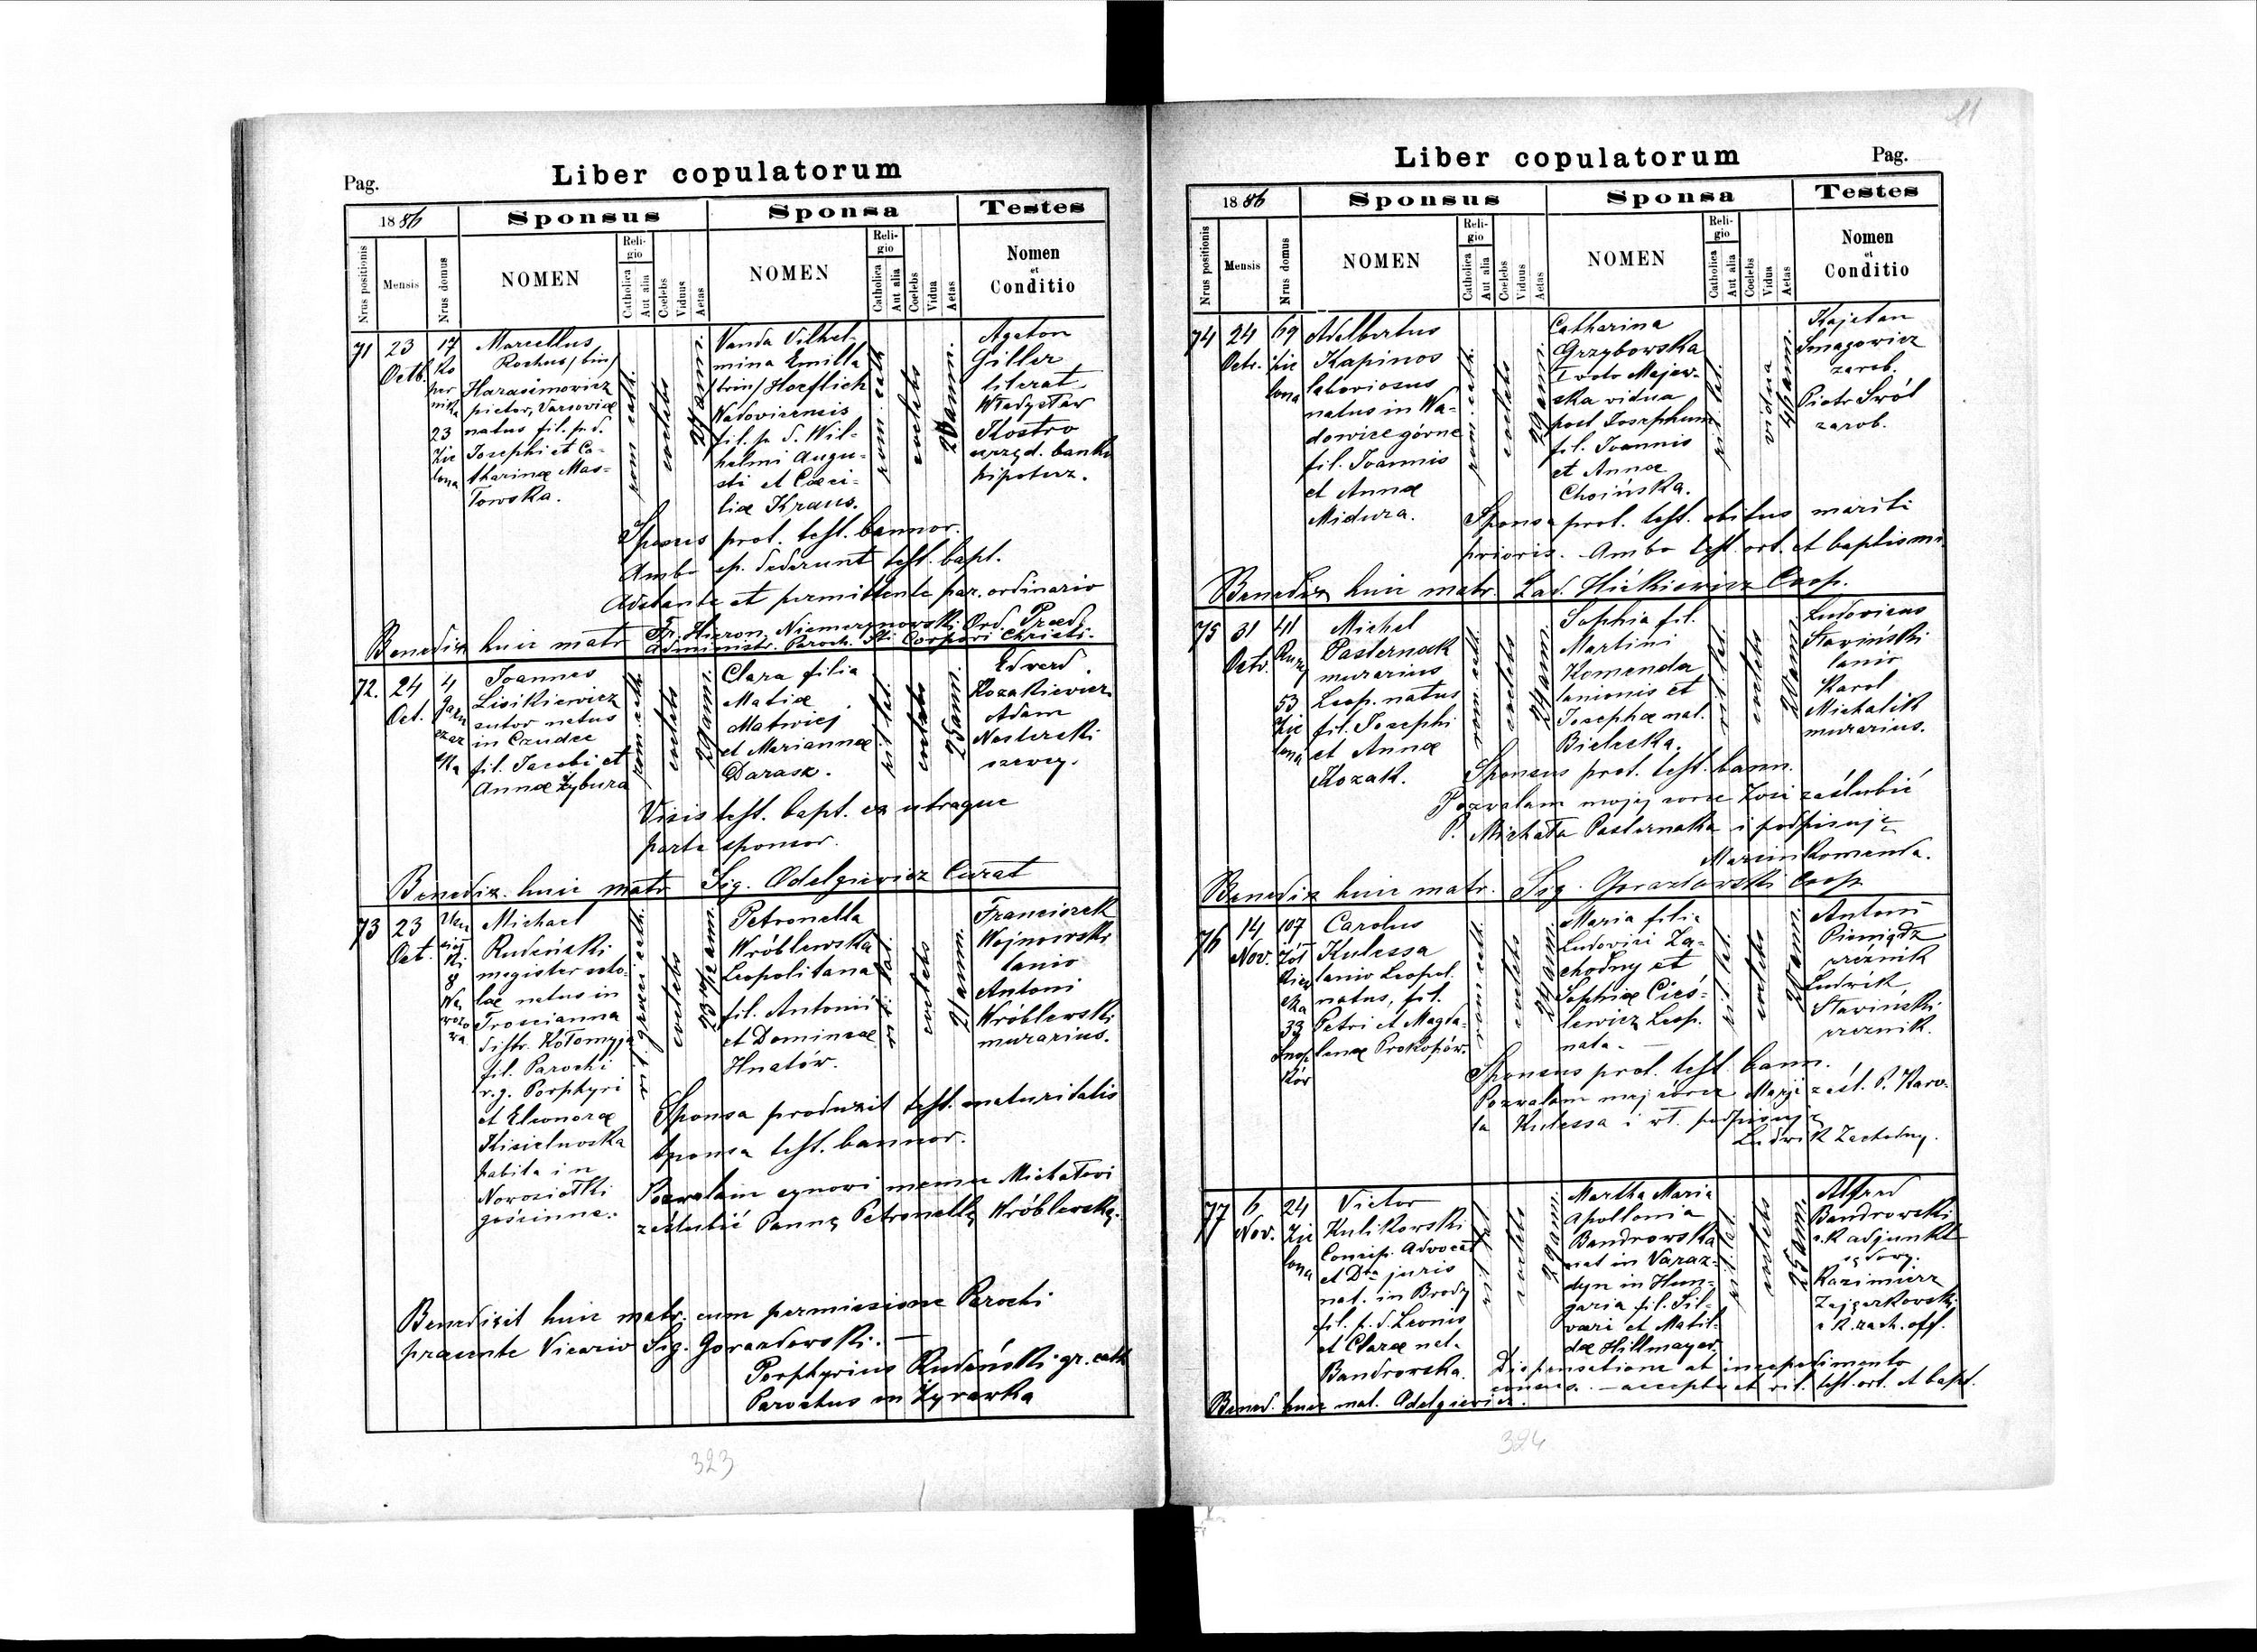 Pag.
Liber copulatorum
1886
Sponsus
Sponsa
Testes
Nrus positionis
Mensis
Nrus domus
NOMEN
Religio
Catholica
Aut alia
Coelebs
Viduus
Aetas
NOMEN
Religio
Catholica
Aut alia
Coelebs
Vidua
Aetas
Nomen
et
Conditio
71
23
Octb.
17
Ko
per
nika
23
Zie
lona
Marcellus
Rochus /bin/
Harasimowicz
pictor, Varsoviæ
natus fil. p. d.
Josephi et Ca-
tharinæ Mas-
łowska.
rom. cath.
coelebs
27 ann.
Vanda Vilhel-
mina Emilla
/trin/ Hoeflich
Wadovicensis
fil. p. d. Wil-
helmi Augu-
sti et Cæci-
liæ Kraus.
rom. cath.
coelebs
ann.
Agaton
Giller
literat
Władysław
Kostro
urzęd. banku
hipotecz.
prot. test. bannor.
Ambo ep. dederunt test. bapt.
Adstante et permittente par. ordinario
Benedix huic matr Fr. Hieron. Niemczynowski Ord. Præd.
Administr. Paroch. Sti Corpori Christi.
72.
24
Oct.
4
Joannes
Lisikiewicz
sutor natus
in Czudce
fil. Jacobi et
Annæ Żybura
rom. cath.
coelebs
29 ann.
Clara filia
Matiæ
Matwiej
et Mariannæ
Darasz.
rit. lat.
coelebs
25 ann.
Edward
Kozakiewicz
Adam
Nesterski
szewcy.
Visis test. bapt. ex utraque
parte sponsor.
Benedix. huic matr Sig. Odelgiewicz Curat
73
23
Oct.
8
Michael
Rudeński
magister scho-
læ natus in
Troscianna
distr. Kołomyja
fil. Parochi
r. g. Porphyri
et Eleonoræ
Kisielewska
habita in
Nowosiołki
gościnne.
rit. græci cath.
coelebs
Petronella
Wróblewska
Leopolitana
fil. Antonii
et Dominicæ
Hnatów.
rit. lat.
coelebs
21 annm.
Franciszek
Wojnowski
lanio
Antoni
Wróblewski
murarius.
Sponsa produxit test. maturitatis
Sponsa test. bannor.
Pozwalam synowi memu Michałowi
zaślubić Pannę Petronellę Wróblewską.
Benedixit huic matr. cum permissione Parochi
præsente Vicario Sig. Gorazdowski. —
Porphyrius Rudeński gr. cath
Parochus in Żyrawka
323
Liber copulatorum
Pag.
1886
Sponsus
Sponsa
Testes
Nrus positionis
Mensis
Nrus domus
NOMEN
Religio
Catholica
Aut alia
Coelebs
Viduus
Aetas
NOMEN
Religio
Catholica
Aut alia
Coelebs
Vidua
Aetas
Nomen
et
Conditio
74
24
Octr.
69
Zie
lona
Adalbertus
Kapinos
laboriosus
natus in Wa-
dowice górne
fil. Joannis
et Annæ
Midura.
rom. cath.
coelebs
29 ann.
Catharina
Grzybowska
I voto Majew-
ska vidua
post Josephum
fil. Joannis
et Annæ
Choińska.
rit. lat.
vidua
46 ann.
Kajetan
Smagowicz
zarob.
Piotr Król
zarob.
Sponsa prot. test. obitus mariti
prioris. Ambo test. ort. et baptismi
Benedix huic matr. Lad. Hićkiewicz Coop.
75
31
Octr.
41
53
Zie
lona
Michel
Pasternak
murarius
Leop. natus
fil. Josephi
et Annæ
Kozak.
rom. cath.
coelebs
24 ann.
Sophia fil.
Martini
Komenda
lanionis et
Josephæ nat.
Bielecka.
rit. lat.
coelebs
20 ann.
Ludovicus
Stawiński
lanio
Karol
Michalik
murarius.
Sponsus prot. test. bann.
Pozwalam mojej corce Zosi zaślubić
P. Michała Pasternaka i podpisuję
Marcin Komenda.
Benedix huic matr. Sig. Gorazdowski Coop
76
14
Nov.
107
Żół
kiew
ska
33
Snop
ków
Carolus
Kulessa
lanio Leopol.
natus, fil.
Petri et Magda-
lenæ Prokopów.
rom. cath.
coelebs
24 ann.
Maria filia
Ludovici Za-
chodny et
Sophiæ Cieś-
lewicz Leop.
nata. —
rit. lat.
coelebs
20 ann.
Antoni
Pieniądz
rzeźnik
Ludwik
Stawiński
rzeźnik.
Sponsus prot. test. bann.
Pozwalam mej córce Marji zaśl. P. Karo-
la Kulessa i wł. podpisuję
Ludwik Zachodny.
77
6
Nov.
24
Zie
lona
Victor
Kulikowski
Concip. Advocat
et Dta juris
nat. in Brody
fil. p. d. Leonis
et Claræ nat.
Bandrowska.
rit. lat
coelebs
29 ann.
Martha Maria
Apollonia
Bandrowska
nat in Varaz-
dyn in Hun-
garia fil. Sil-
væri et Matil-
dæ Hillmayer
rit. lat.
coelebs
25 ann.
Alfred
Bandrowski
c. k adjunkt
sądowy.
Kazimierz
Zajączkowski
c. k. rach. off.
Dispensatione ab impedimento
consang. — accepta et rit. test. ort. et bapt.
Bened. huic mat. Odelgiewicz.
324